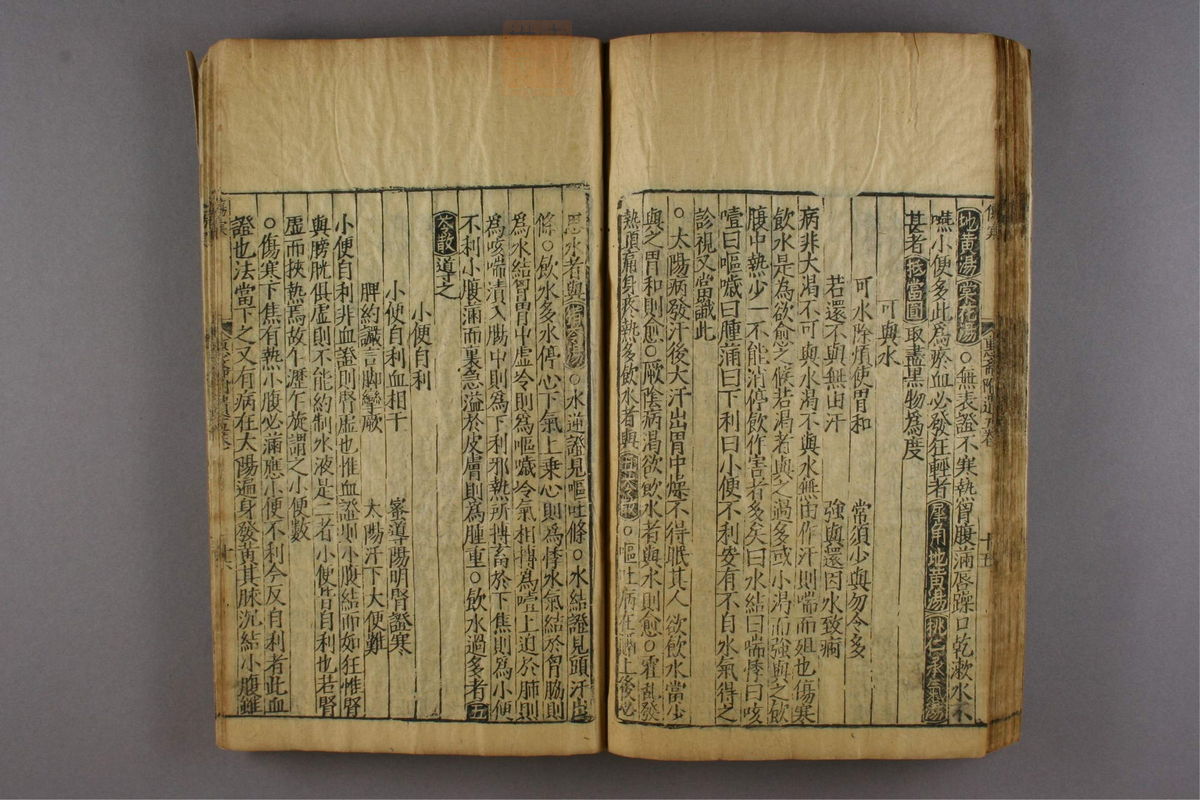 地黃湯 棠花湯 ○無表證不寒熱胷腹滿唇躁口乾漱水不
嚥小便多此為瘀血必發狂輕者 犀角地黃湯 桃仁承氣湯
甚者 抵當圓 取盡黑物為度
可與水
可水除煩使胃和 常須少與勿令多
若還不與無由汗 強與還因水致痾
病非大渴不可與水渴不與水無由作汗則喘而殂也傷寒
飲水是為欲愈之候若渴者與少過多或小渴而強與之飲
腹中熱少一不能消停飲作害者多矣曰水結曰喘悸曰咳
噎曰嘔噦曰腫滿曰下利曰小便不利安有不自水氣得之
診視又當識此
○太陽病發汗後大汗出胃中燥不得眠其人欲飲水當少
與之胃和則愈○厥陰病渴欲飲水者與水則愈○霍亂發
熱頭痛身疼熱多飲水者與 五苓散 ○嘔吐病在膈上後必
思水者與 猪苓湯 ○水逆證見嘔吐條○水結證見頭汗出
條○飲水多水停心下氣上乗心則為悸水氣結於胷脇則
為水結胷胃中虛冷則為嘔噦冷氣相摶為噎上迫於肺則
為咳喘漬入腸中則為下利邪熱所摶蓄於下焦則為小便
不利小腹滿而裏急溢於皮膚則為腫重○飲水過多者 五
苓散 導之
小便自利
小便自利血相干 宻導陽明腎證寒
脾約譫言脚攣厥 太陽汗下大便難
小便自利非血證則腎虛也惟血證則小腹結而如狂惟腎
與膀胱俱虛則不能約制水液是二者小便皆自利也若腎
虛而挾熱焉故乍瀝乍旋謂之小便數
○傷寒下焦有熱小腹必滿應小便不利今反自利者此血
證也法當下之又有病在太陽遍身發黃其脉沉結小腹雖